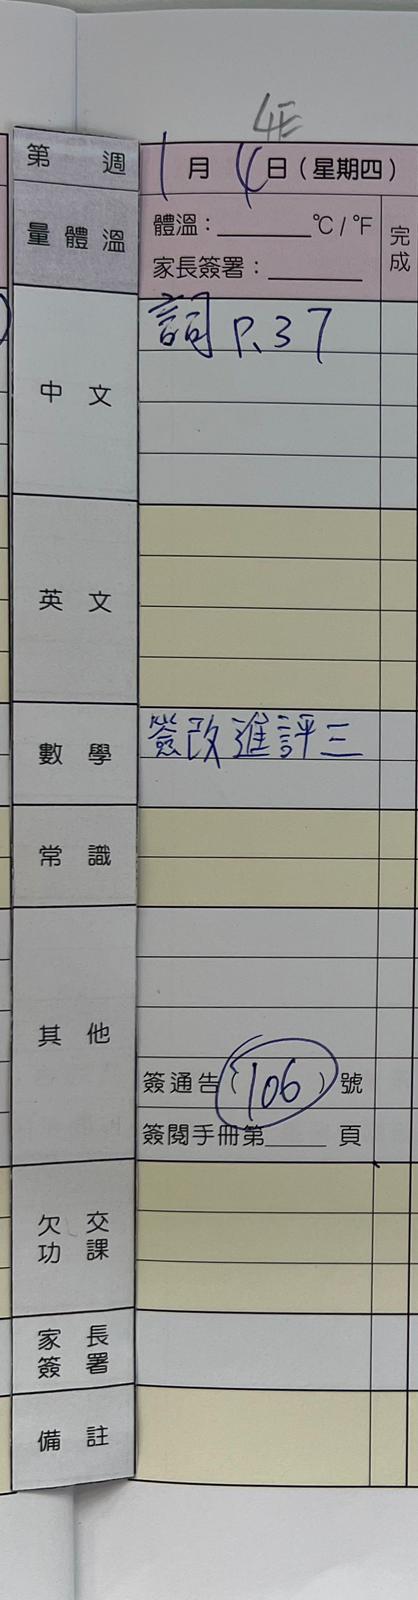 4E
第 週 1月4日（星期四）
量體溫 體溫：________℃/℉ 完成
家長簽署：________
中文 詞 P.37
英文
數學 簽改進評三
常識
其他
簽通告（106）號
簽閱手冊第_____頁
欠交功課
家長簽署
備註